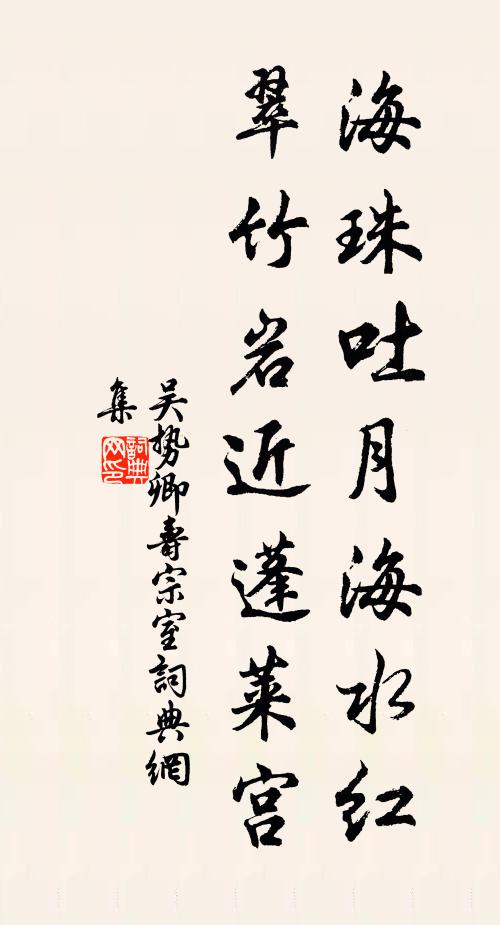 海珠吐月海水红
翠竹岩近蓬莱宫
吴势卿寿宗室詞典網
集
詞典
网印